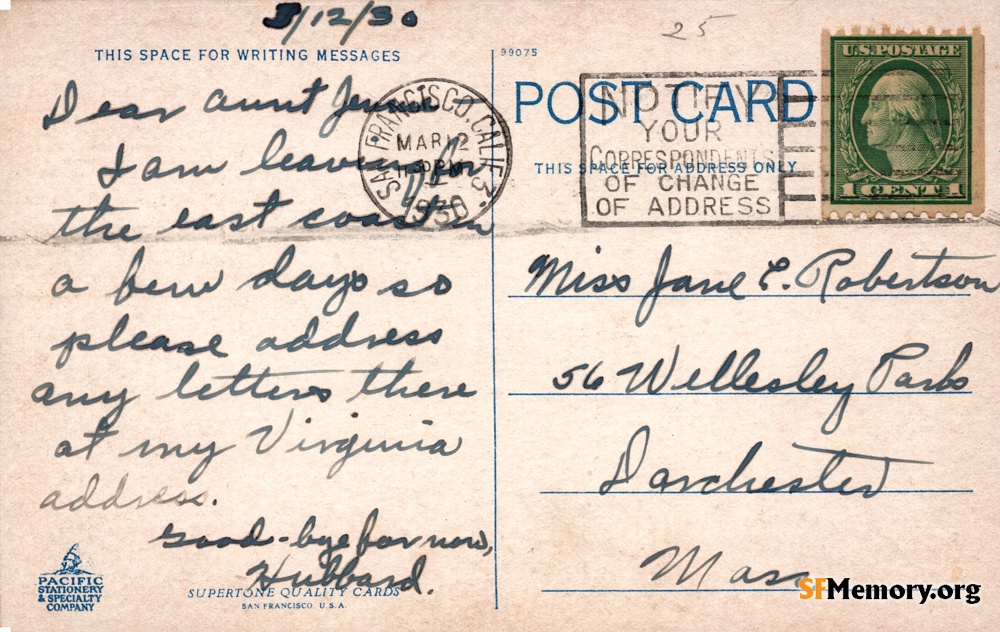 3/12/30
25
THIS SPACE FOR WRITING MESSAGES
Dear Aunt Jennie
I am leaving for
the east coast in
a few days so
please address
any letters there
at my Virginia
address.
Good-bye for now,
Hubbard.
PACIFIC
STATIONERY
& SPECIALTY
COMPANY
SUPERTONE QUALITY CARDS
SAN FRANCISCO. U.S.A.
SAN FRANCISCO, CALIF. 3
MAR 12
1930
99075
POST CARD
THIS SPACE FOR ADDRESS ONLY
NOTIFY
YOUR
CORRESPONDENTS
OF CHANGE
OF ADDRESS
U.S. POSTAGE
1 CENT 1
Miss Jane E. Robertson
56 Wellesley Park
Dorchester
Mass
SFMemory.org